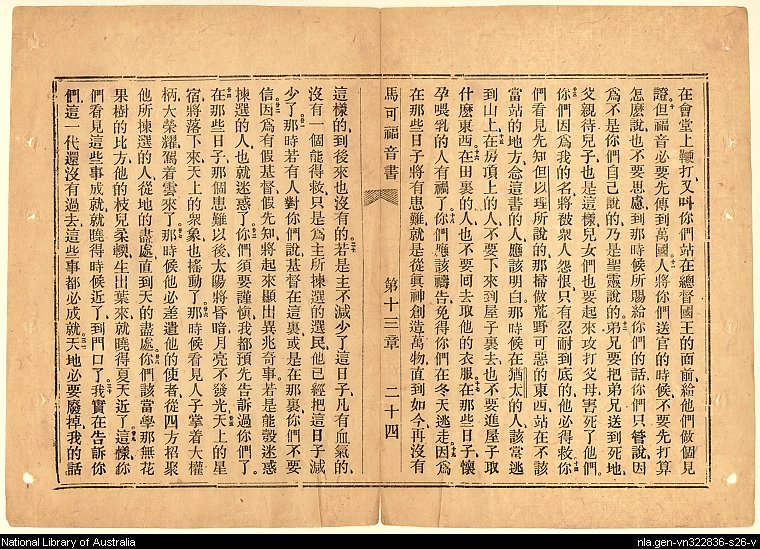 在會堂上鞭打、又叫你們站在總督國王的面前、給他們做個見
證、但福音必要先傳到萬國、人將你們送官的時候、不要先打算
怎麼說、也不要思慮、到那時候、所賜給你們的話、你們只管說、因
爲不是你們自己說的、乃是聖靈說的、弟兄要把弟兄送到死地、
父親待兒子也是這樣、兒女們也要起來攻打父母、害死了他們。
你們因爲我的名、將被衆人怨恨、只有忍耐到底的、他必得救。你
們看見先知但以理所說的、那掃做荒野可惡的東西、站在不該
當站的地方、念這書的人、應該明白、那時候在猶太的人、該當逃
到山上、在房頂上的人、不要下來到屋子裏去、也不要進屋子取
什麼東西、在田裏的人、也不要回去取他的衣服、在那些日子、懷
孕喂乳的人有禍了、你們應該禱告、免得你們在冬天逃走、因爲
在那些日子、將有患難、就是從眞神創造萬物、直到如今、再沒有
馬可福音書 第十三章 二十四
這樣的、到後來也沒有的、若是主不減少了這日子、凡有血氣的、
沒有一個能得救、只是爲主所揀選的選民、他已經把這日子減
少了、那時若有人對你們說、基督在這裏、或是在那裏、你們不要
信、因爲有假基督、假先知、將起來顯出異兆奇事、若是能彀迷惑
揀選的人、也就迷惑了、你們須要謹愼、我都預先告訴過你們了。
在那些日子、那個患難以後、太陽將昏暗、月亮不發光、天上的星
宿將落下來、天上的衆象也搖動了、那時候看見人子掌着大權
柄、大榮耀、駕着雲來了、那時候他必差遣他的使者、從四方招聚
他所揀選的人、從地的盡處、直到天的盡處、你們該當學那無花
果樹的比方、他的枝兒柔輭、生出葉來、就曉得夏天近了、這樣你
們看見這些事成就、就曉得時候近了、到門口了、我實在告訴你
們、這一代還沒有過去、這些事都必成就、天地必要廢掉、我的話
National Library of Australia
nla.gen-vn322836-s26-v